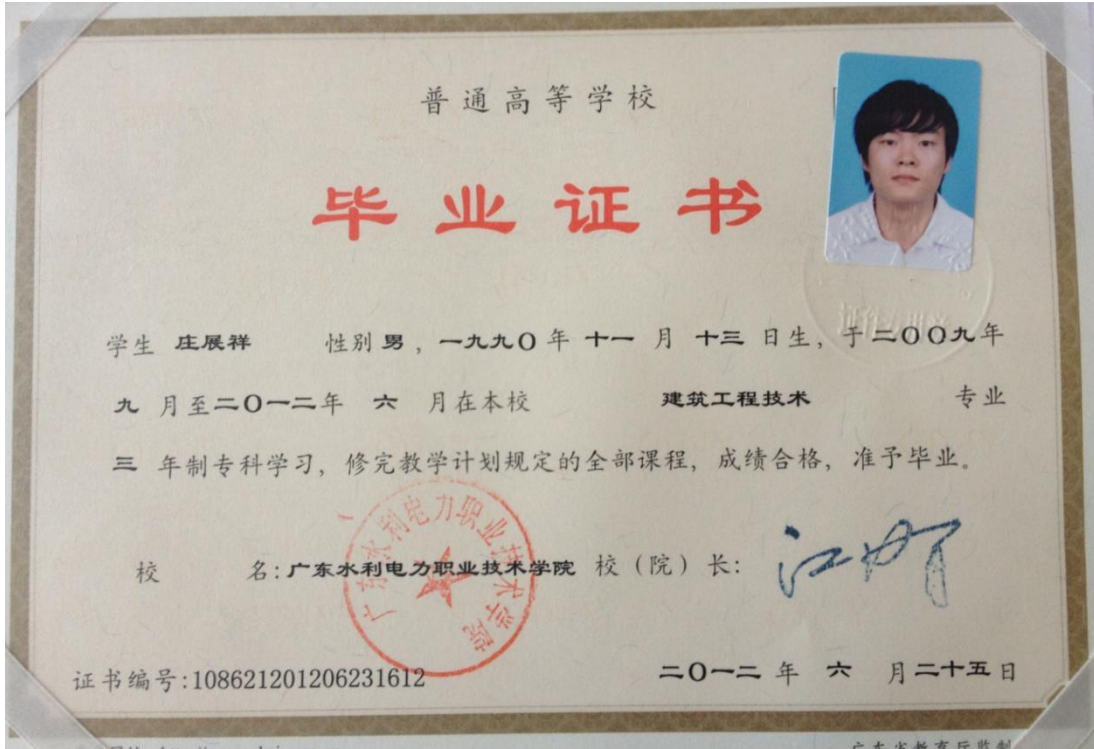 普通高等学校
毕业证书
学生 庄展祥 性别 男，一九九〇年 十一 月 十三 日生，于二〇〇九年
九 月至二〇一二年 六 月在本校 建筑工程技术 专业
三 年制专科学习，修完教学计划规定的全部课程，成绩合格，准予毕业。
广东水利电力职业技术学院
校 名：广东水利电力职业技术学院 校（院）长：
证书编号:108621201206231612 二〇一二 年 六 月二十五日
广东省教育厅监制